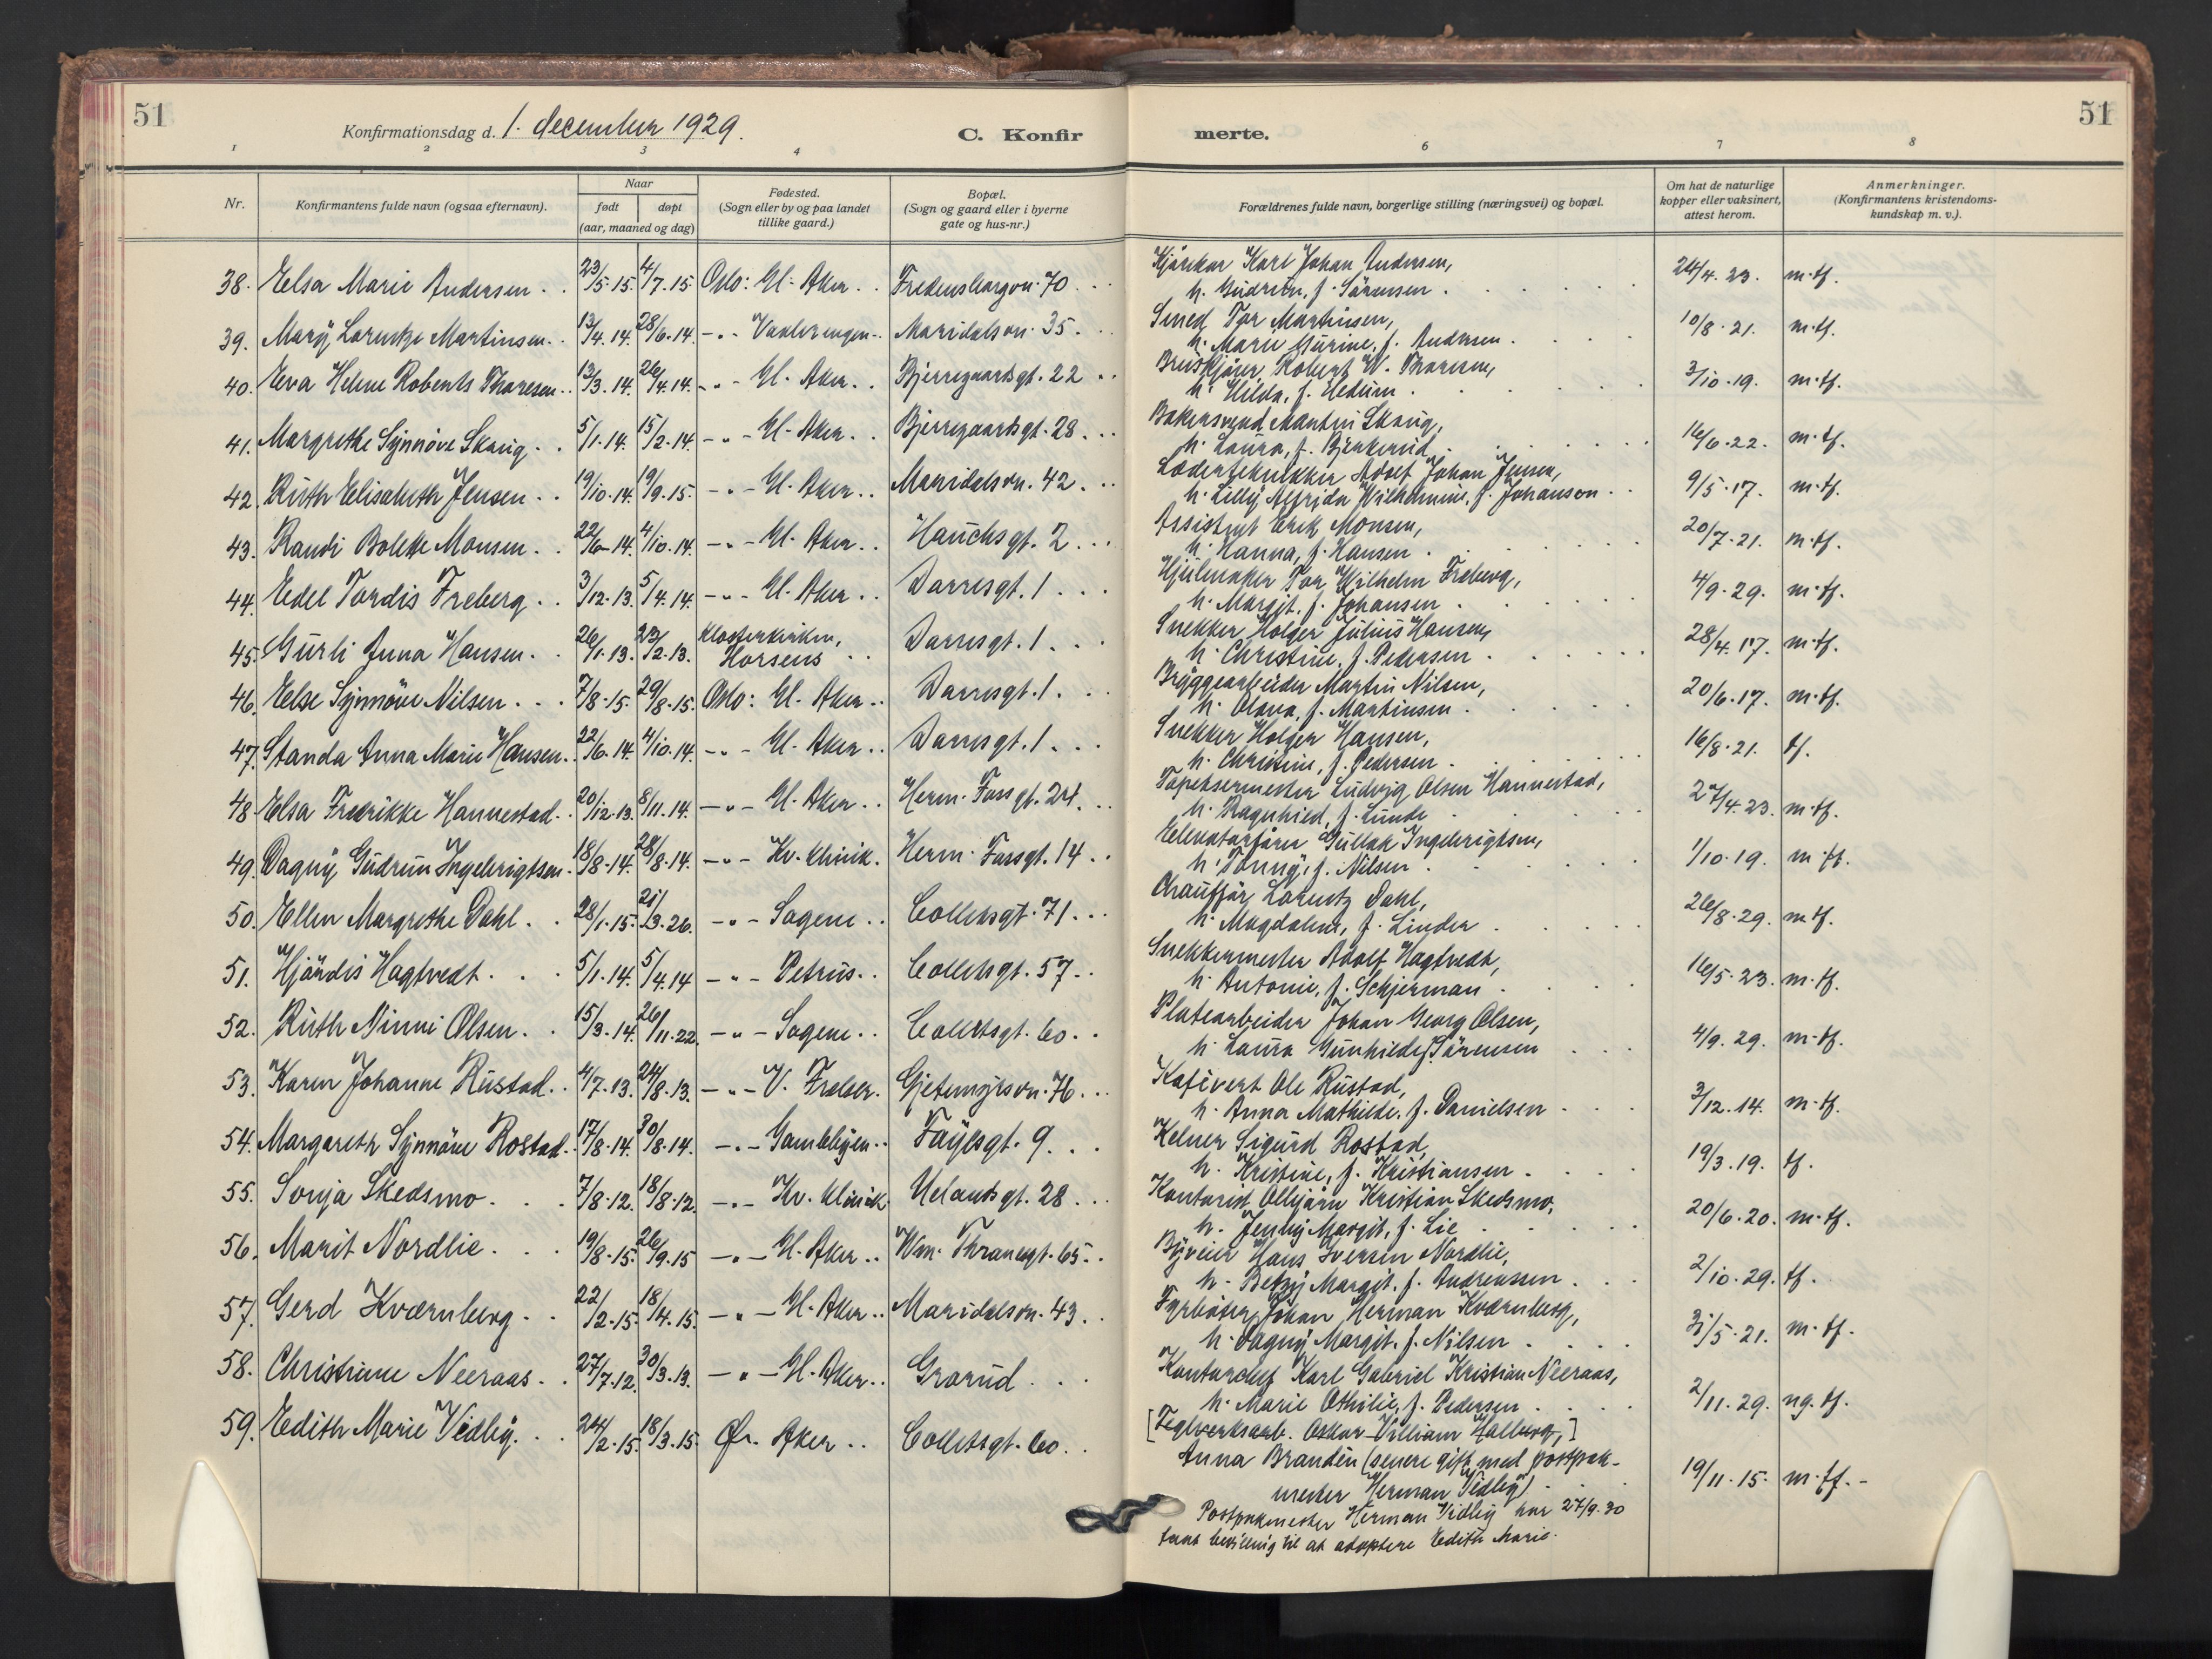 51
Konfirmationsdag d. 1. december 1929.
C. Konfir
merte.
51
1 2 3 4 6 7 8
Nr.
Konfirmantens fulde navn (ogsaa efternavn).
Naar
født døpt
(aar, maaned og dag)
Fødested.
(Sogn eller by og paa landet
tillike gaard.)
Bopæl.
(Sogn og gaard eller i byerne
gate og hus-nr.)
Forældrenes fulde navn, borgerlige stilling (næringsvei) og bopæl.
Om hat de naturlige
kopper eller vaksinert,
attest herom.
Anmerkninger.
(Konfirmantens kristendoms-
kundskap m. v.).
38. Elsa Marie Andersen . . 23/5.15. 4/7.15. Oslo: Gl. Aker . . Fredensborgvn. 70 . . .
Kjørekar Karl Johan Andersen,
h. Gudrun, f. Sørensen . 24/4.23. m.tf.
39. Mary Lorentze Martinsen . . 13/4.14. 28/6.14. -"- Vaalerengen . . Maridalsvn. 35. . .
Smed Tor Martinsen,
h. Marie Gurine, f. Andersen . 10/8.21. m.tf.
40. Eva Helene Roberts Thoresen . . 13/3.14. 26/4.14. -"- Gl. Aker . . Bjerregaardsgt. 22 . .
Robert W. Thoresen,
h. Hilda, f. Hedum . 3/10.19. m.tf.
41. Margrethe Synnöve Skaug . . 5/1.14. 15/2.14. -"- Gl. Aker . . Bjerregaardsgt. 28. . .
Bakersvend Martin Skaug,
h. Laura, f. Bjerkerud . 16/6.22. m.tf.
42. Ruth Elisabeth Jensen . . 19/10.14. 19/9.15. -"- Gl. Aker . . Maridalsvn. 42. . .
Adolf Johan Jensen,
h. Lilly Alfrida Wilhelmine, f. Johanson . . 9/5.17. m.tf.
43. Randi Bolette Monsen . . 22/6.14. 4/10.14. -"- Gl. Aker . . Hauchsgt. 2 . . .
Assistent Erik Monsen,
h. Hanna, f. Hansen . 20/7.21. m.tf.
44. Edel Tordis Freberg . . 3/12.13. 5/4.14. -"- Gl. Aker . . Darresgt. 1 . . .
Hjulmaker Tor Wilhelm Freberg,
h. Margit, f. Johansen . 4/9.29. m.tf.
45. Gurli Anna Hansen . . 26/1.13. 23/2.13. Klosterkirken,
Horsens . . Darresgt. 1 . . .
Snekker Holger Julius Hansen,
h. Christine, f. Pedersen . 28/4.17. m.tf.
46. Else Synnöve Nilsen . . . 7/8.15. 29/8.15. Oslo: Gl. Aker . . Darresgt. 1 . . .
Bryggearbeider Martin Nilsen,
h. Olava, f. Martinsen . 20/6.17. m.tf.
47. Standa Anna Marie Hansen . . 22/6.14. 4/10.14. -"- Gl. Aker . . Darresgt. 1 . . .
Snekker Holger Hansen,
h. Christine, f. Pedersen . 16/8.21. tf.
48. Elsa Fredrikke Hannestad . . 20/12.13. 8/11.14. -"- Gl. Aker . . Herm. Fossgt. 24. . .
Tapetsermester Ludvig Olsen Hannestad,
h. Ragnhild, f. Lunde . 27/4.23. m.tf.
49. Dagny Gudrun Ingebrigtsen . 18/8.14. 28/8.14. -"- Kv. klinik. Herm. Fossgt. 14 . .
Elevatorfører Gullak Ingebrigtsen,
h. Tonny, f. Nilsen . 1/10.19. m.tf.
50. Ellen Margrethe Dahl . . 28/1.15. 21/3.26. -"- Sagene . . Colletsgt. 71 . . .
Chauffør Lorentz Dahl,
h. Magdalene, f. Linder . 26/8.29. m.tf.
51. Hjördis Hagtvedt . . . 5/1.14. 5/4.14 -"- Petrus . . Colletsgt. 57 . .
Snekkermester Adolf Hagtvedt,
h. Antonie, f. Schjerman . 16/5.23. m.tf.
52. Ruth Ninni Olsen . . 15/3.14. 26/11.22. -"- Sagene . . Colletsgt. 60 . .
Platearbeider Johan Georg Olsen,
h. Laura Gunhilde, f. Sørensen . . . 4/9.29. m.tf.
53. Karen Johanne Rustad . . 4/7.13. 24/8.13. -"- V. Frelser. Gjetemyrsvn. 76 . . .
Kafévert Ole Rustad,
h. Anna Mathilde, f. Danielsen . . . 3/12.14. m.tf.
54. Margareth Synnöve Rostad . . 17/8.14. 30/8.14. -"- Gamlebyen . . Fayesgt. 9 . . .
Kelner Sigurd Rostad,
h. Kristine, f. Kristiansen . 19/3.19. tf.
55. Sonja Skedsmo . . . 7/8.12. 18/8.12. -"- Kv. klinik Uelandsgt. 28 . . .
Kontorist Ollbjørn Kristian Skedsmo,
h. Jenny Margit, f. Lie . 20/6.20. m.tf.
56. Marit Nordlie . . . 19/8.15. 26/9.15 -"- Gl. Aker . . Wm. Thranesgt. 65 . .
Byveier Hans Iversen Nordlie,
h. Betzy Margit, f. Andreassen . . . 2/10.29. tf.
57. Gerd Kværnberg . . 22/2.15. 18/4.15. -"- Gl. Aker . . Maridalsvn. 43 . .
Fyrbøter Johan Herman Kværnberg,
h. Dagny Margit, f. Nilsen . . . . 31/5.21. m.tf.
58. Christiane Neeraas . . 27/7.12. 30/3.13. -"- Gl. Aker . . Grorud . . .
Kontorchef Karl Gabriel Kristian Neeraas,
h. Marie Othilie, f. Pedersen . . . . 2/11.29. ng.tf.
59. Edith Marie Vidley . . . 24/2.15. 18/3.15. Ø. Aker . . Colletsgt. 60 . .
[Teglverksarb. Oskar Villiam Halberg,]
Anna Brandén (senere gift med postpak-
mester Herman Vidley) . . . 19/11.15. m.tf. -
Postpakmester Herman Vidley har 27/9.30
faat bevilling til at adoptere Edith Marie.